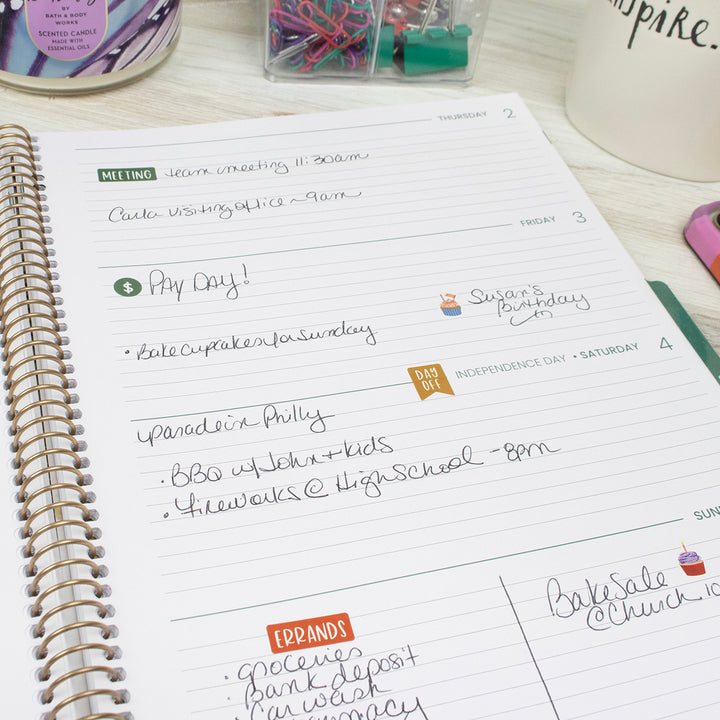 BY
BATH & BODY
WORKS
SCENTED CANDLE
MADE WITH
ESSENTIAL OILS
inspire.
THURSDAY 2
MEETING team meeting 11:30am
Carla visiting office ~ 9am
FRIDAY 3
$ PAY DAY!
Susan's
Birthday
• Bake cupcakes for Sunday
DAY
OFF
INDEPENDENCE DAY • SATURDAY 4
parade in Philly
• BBQ w/ John + kids
• Fireworks @ High School - 8pm
SUN
Bake Sale
@ Church 10
ERRANDS
• groceries
• Bank deposit
• Car wash